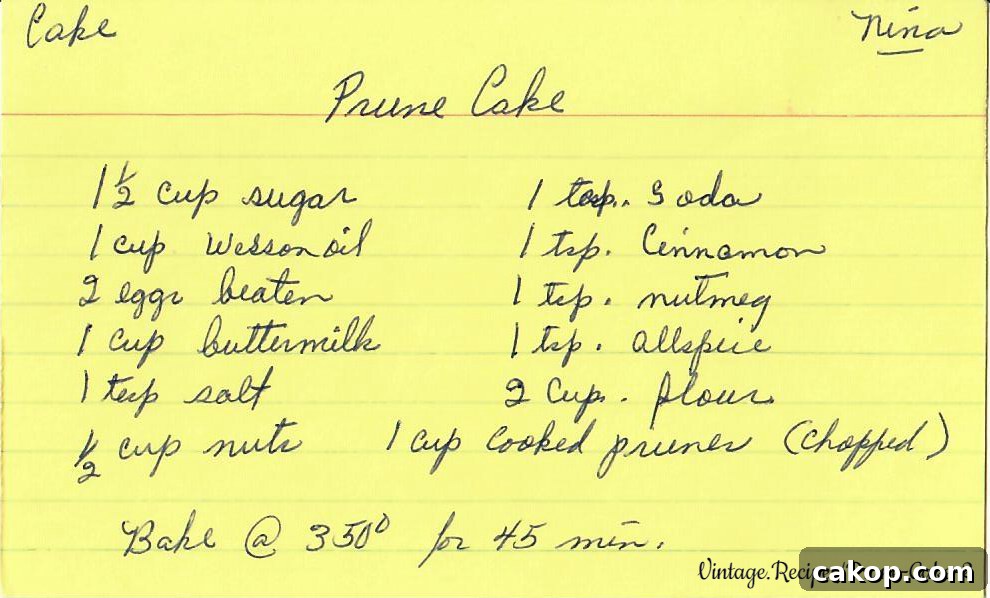 Cake Nina
Prune Cake
1 1/2 cup sugar 1 tsp. Soda
1 cup Wesson oil 1 tsp. Cinnamon
2 eggs beaten 1 tsp. nutmeg
1 cup buttermilk 1 tsp. allspice
1 tsp salt 2 Cup. flour
1/2 cup nuts 1 cup cooked prunes (chopped)
Bake @ 350° for 45 min.
Vintage.Recipe
cakop.com